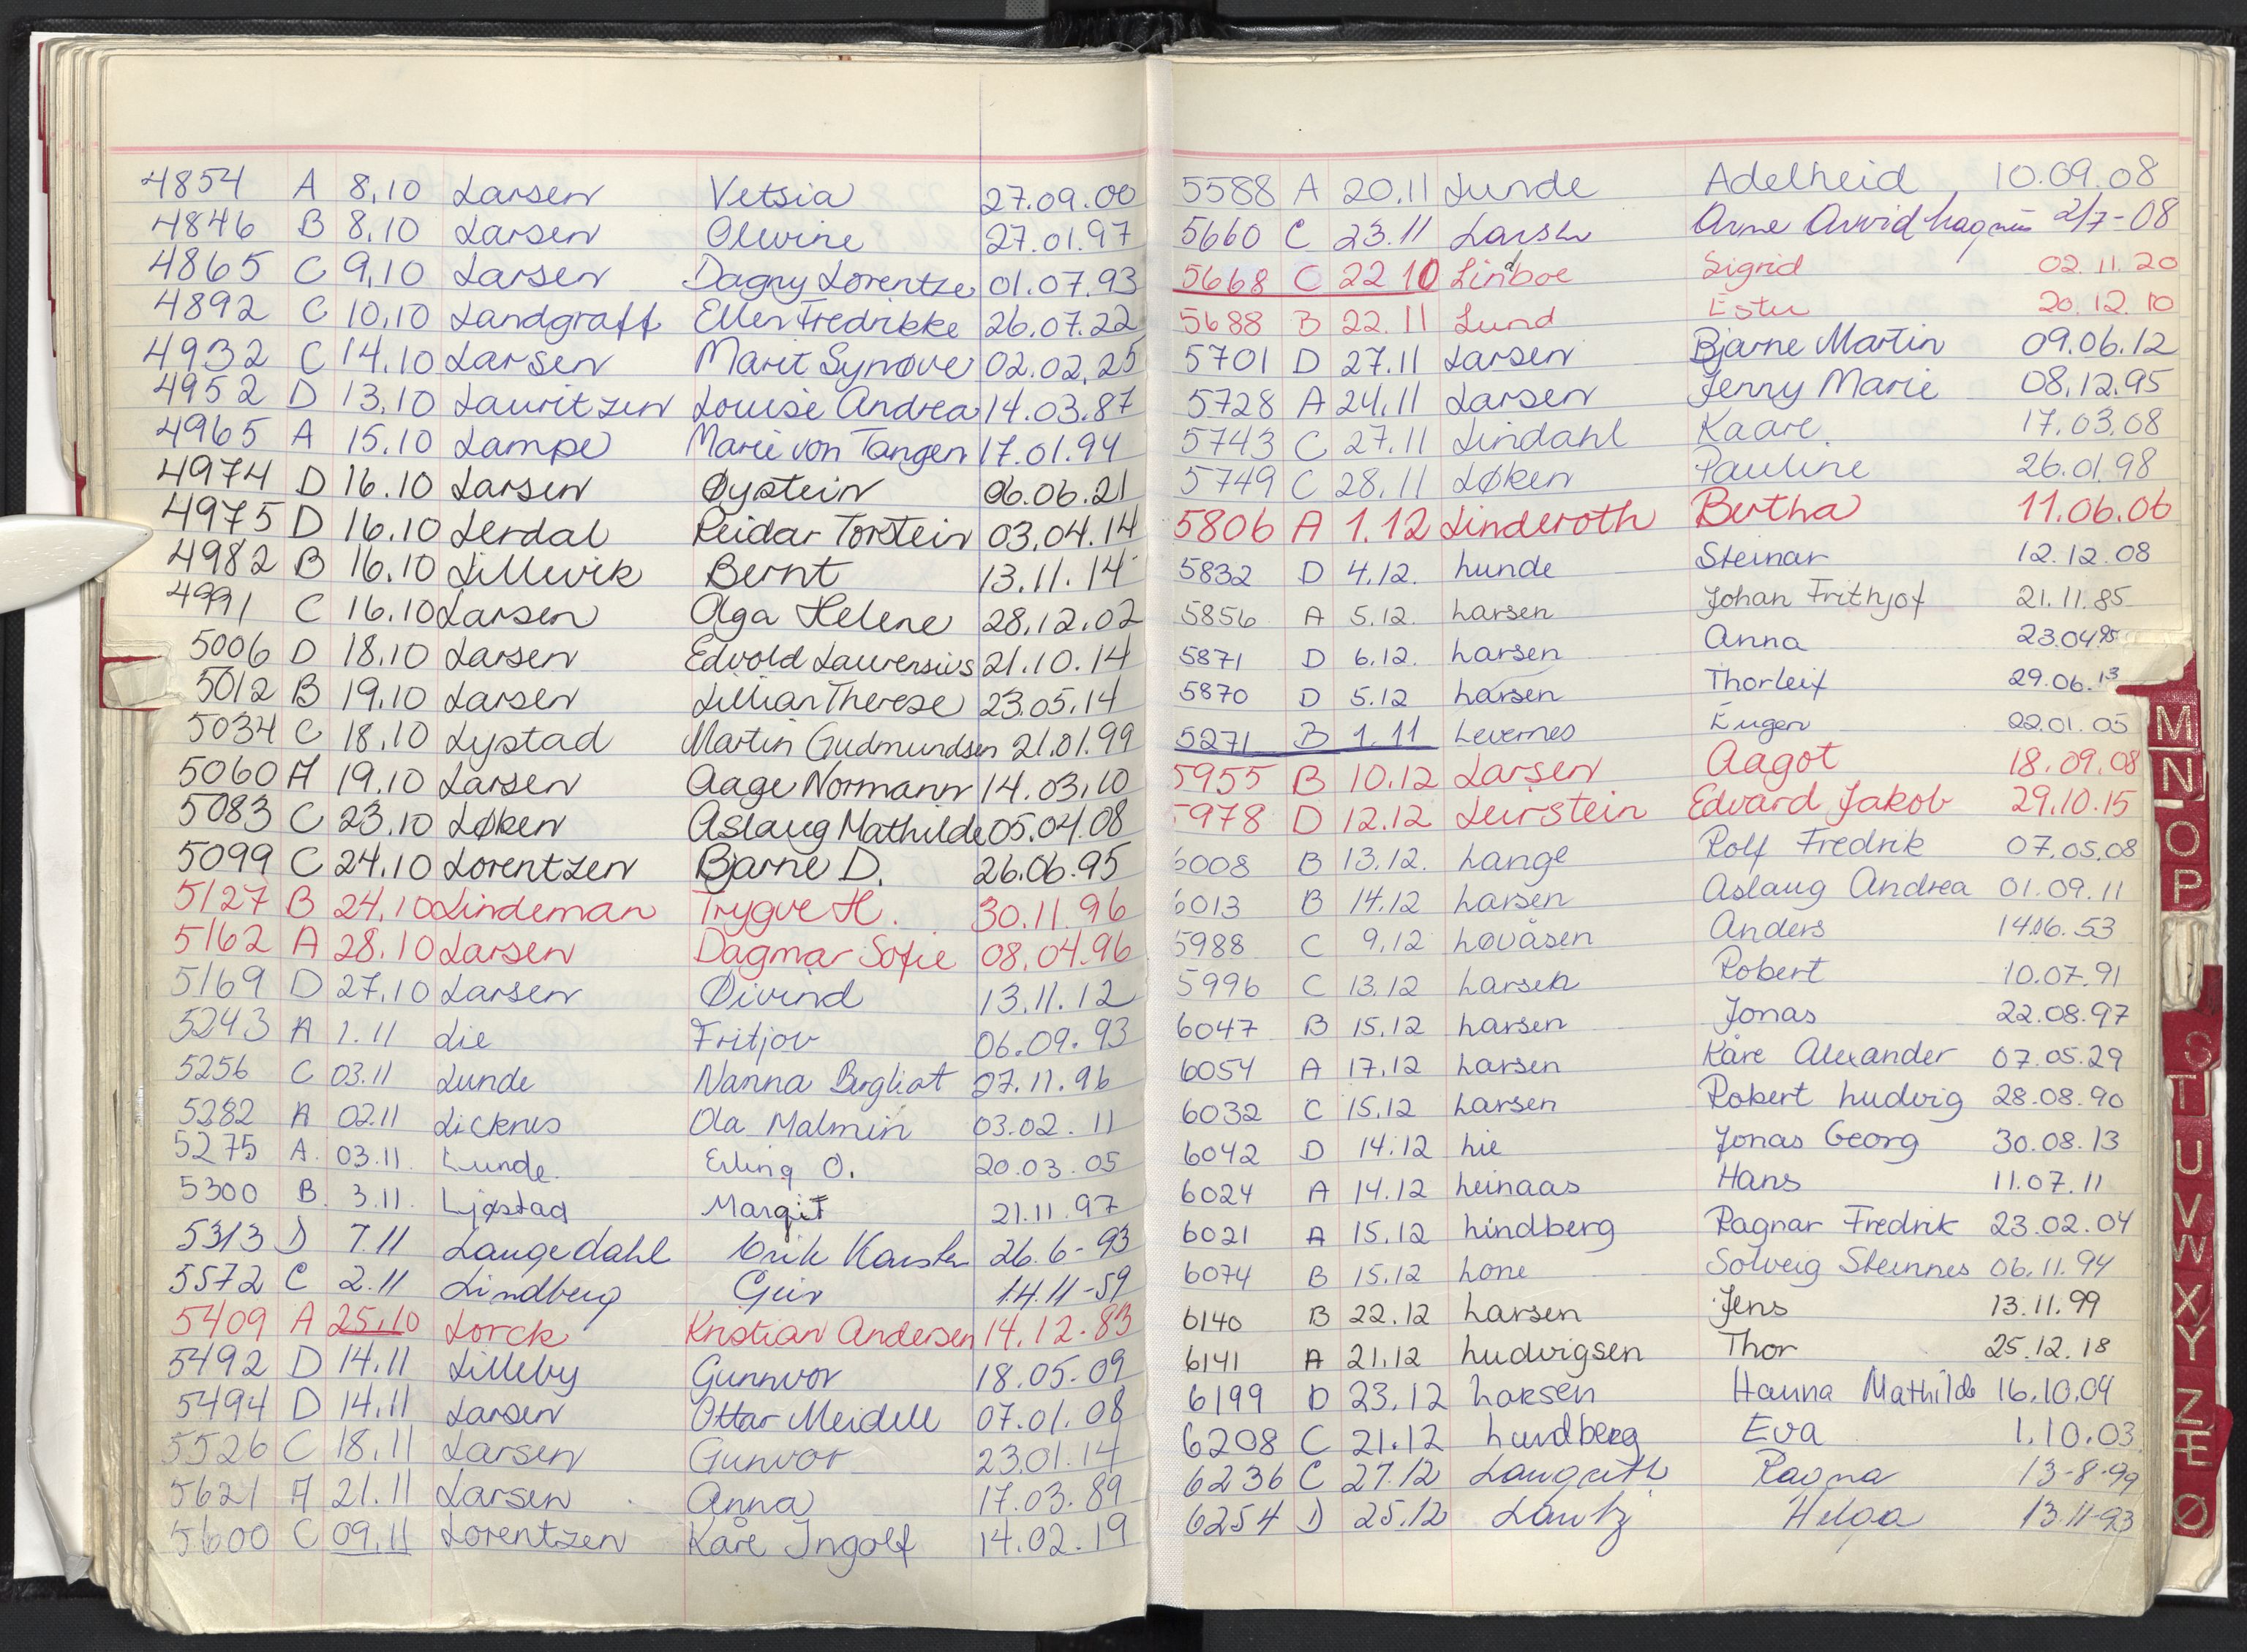 4854 A 8.10 Larsen Vetsia 27.09.00
4846 B 8.10 Larsen Olevine 27.01.97
4865 C 9.10 Larsen Dagny Lorentze 01.07.93
4892 C 10.10 Landgraff Ellen Fredrikke 26.07.22
4932 C 14.10 Larsen Marit Synøve 02.02.25
4952 D 13.10 Lauritzen Louise Andrea 14.03.87
4965 A 15.10 Lampe Marie von Tangen 17.01.94
4974 D 16.10 Larsen Øystein 06.06.21
4975 D 16.10 Lerdal Reidar Torstein 03.04.14
4982 B 16.10 Lillevik Bernt 13.11.14
4991 C 16.10 Larsen Olga Helene 28.12.02
5006 D 18.10 Larsen Edvold Laurensius 21.10.14
5012 B 19.10 Larsen Lillian Therese 23.05.14
5034 C 18.10 Lystad Martin Gudmundsen 21.01.99
5060 A 19.10 Larsen Aage Normann 14.03.10
5083 C 23.10 Løken Aslaug Mathilde 05.04.08
5099 C 24.10 Lorentzen Bjarne D. 26.06.95
5127 B 24.10 Lindeman Trygve H. 30.11.96
5162 A 28.10 Larsen Dagmar Sofie 08.04.96
5169 D 27.10 Larsen Øivind 13.11.12
5243 A 1.11 Lie Fritjov 06.09.93
5256 C 03.11 Lunde Nanna Bergliot 07.11.96
5282 A 02.11 Licknes Ola Malmin 03.02.11
5275 A. 03.11. Lunde. Erling O. 20.03.05
5300 B. 3.11. Ljøstad Margit 21.11.97
5313 D 7.11 Langedahl Erik Karsten 26.6-93
5572 C 2.11 Lindberg Geir 14.11-59
5409 A 25.10 Lorck Kristian Andersen 14.12.83
5492 D 14.11 Lilleby Gunnvor 18.05.09
5494 D 14.11 Larsen Ottar Meidell 07.01.08
5526 C 18.11 Larsen Gunvor 23.01.14
5621 A 21.11 Larsen Anna 17.03.89
5600 C 09.11 Lorentzen Kåre Ingolf 14.02.19
5588 A 20.11 Lunde Adelheid 10.09.08
5660 C 23.11 Larsen Arne Arvid Magnus 2/7-08
5668 C 22 10 Lindboe Sigrid 02.11.20
5688 B 22.11 Lund Ester 20.12.10
5701 D 27.11 Larsen Bjarne Martin 09.06.12
5728 A 24.11 Larsen Jenny Marie 08.12.95
5743 C 27.11 Lindahl Kaare 17.03.08
5749 C 28.11 Løken Pauline 26.01.98
5806 A 1.12 Linderoth Bertha 11.06.06
5832 D 4.12. Lunde Steinar 12.12.08
5856 A 5.12. Larsen Johan Frithjof 21.11.85
5871 D 6.12. Larsen Anna 23.04.95
5870 D 5.12 Larsen Thorleif 29.06.13
5271 B 1.11 Levernes Eugen 22.01.05
5955 B 10.12 Larsen Aagot 18.09.08
5978 D 12.12 Leirstein Edvard Jakob 29.10.15
6008 B 13.12. Lange Rolf Fredrik 07.05.08
6013 B 14.12 Larsen Aslaug Andrea 01.09.11
5988 C 9.12 Løvåsen Anders 14.06.53
5996 C 13.12 Larsen Robert 10.07.91
6047 B 15.12 Larsen Jonas 22.08.97
6054 A 17.12 Larsen Kåre Alexander 07.05.29
6032 C 15.12 Larsen Robert Ludvig 28.08.90
6042 D 14.12 Lie Jonas Georg 30.08.13
6024 A 14.12 Leinaas Hans 11.07.11
6021 A 15.12 Lindberg Ragnar Fredrik 23.02.04
6074 B 15.12 Lone Solveig Steinnes 06.11.94
6140 B 22.12 Larsen Jens 13.11.99
6141 A 21.12 Ludvigsen Thor 25.12.18
6199 D 23.12 Larsen Hanna Mathilde 16.10.04
6208 C 21.12 Lundberg Eva 1.10.03
6236 C 27.12 Ragna 13-8-99
6254 D 25.12 Lantz Helga 13.11-93
M
N
O
P
S
T
U
V
W
X
Y
Z
Æ
Ø